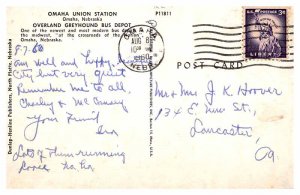 OMAHA UNION STATION
Omaha, Nebraska
OVERLAND GREYHOUND BUS DEPOT
One of the newest and most modern bus depots in
the midwest, "at the crossroads of the Nation"
Omaha, Nebraska
P11811
8-7-60
am well and happy here
City but very quiet
Remember me to all
Charley & Mc
Your Friend
Lots of them running
loose ha ha
Dunlap-Henline Publishers, North Platte, Nebraska
OMAHA
AUG 8
PM
1960
NEBR.
3¢
LIBERTY
POST CARD
Mr & Mrs J. K. Hoover
134 E. New St.,
Lancaster,
Pa.